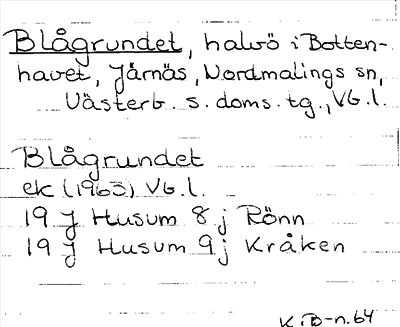 Blågrundet, halvö i Botten-
havet, Järnäs, Nordmalings sn,
Västerb. s. doms. tg., Vb. l.
Blågrundet
ek (1963) Vb. l.
19 J Husum 8 j Rönn
19 J Husum 9 j Kråken
K i B-n. 64